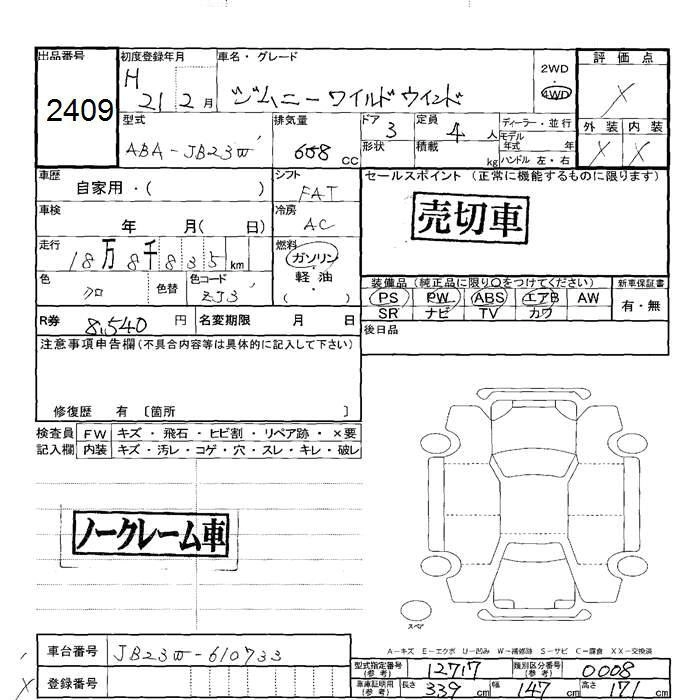 出品番号 初度登録年月 車名・グレード 2WD 評価点
2409 H 21 2月 ジムニー ワイルドウインド 4WD X
型式 排気量 ドア 3 定員 4人 ディーラー・並行 外装 内装
ABA-JB23W 658 cc 形状 積載 kg モデル年式 年 X X
ハンドル 左・右
車歴 自家用・( ) シフト FAT セールスポイント (正常に機能するものに限ります)
車検 年 月( 日) 冷房 AC 売切車
走行 18万8千835km 燃料 ガソリン
軽油
( )
色 クロ 色替 色コード ZJ3 装備品 (純正品に限り○をつけてください) 新車保証書
PS PW ABS エアB AW 有・無
SR ナビ TV カワ
R券 8,540円 名変期限 月 日 後日品
注意事項申告欄(不具合内容等は具体的に記入して下さい)
修復歴 有 〔箇所 〕
検査員 FW キズ・飛石・ヒビ割・リペア跡・×要
記入欄 内装 キズ・汚レ・コゲ・穴・スレ・キレ・破レ
ノークレーム車
スペア
A-キズ E-エクボ U-凹み W-補修跡 S-サビ C-腐食 XX-交換済
車台番号 JB23W-610733 型式指定番号(参考) 12717 類別区分番号(参考) 0008
X 登録番号 車庫証明用(参考) 長さ 339cm 幅 147cm 高さ 171cm